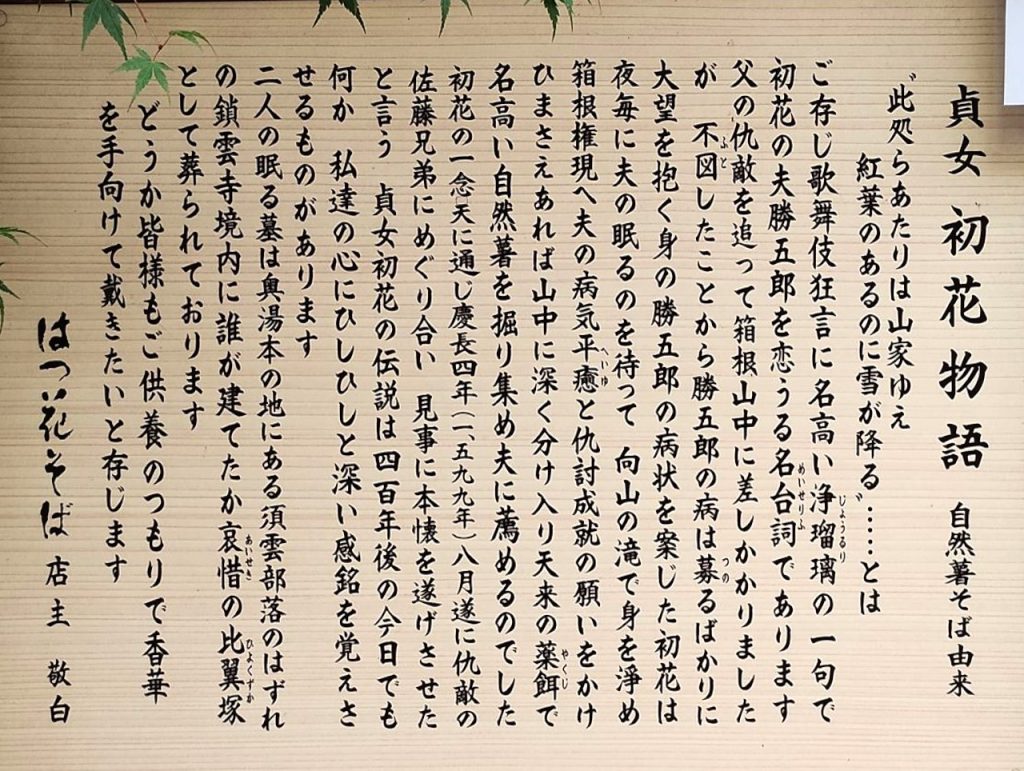 貞女 初花物語 自然薯そば由来
〝此処らあたりは山家ゆえ
紅葉のあるのに雪が降る〟……とは
ご存じ歌舞伎狂言に名高い浄瑠璃の一句で
初花の夫勝五郎を恋うる名台詞であります
父の仇敵を追って箱根山中に差しかかりました
が 不図したことから勝五郎の病は募るばかりに
大望を抱く身の勝五郎の病状を案じた初花は
夜毎に夫の眠るのを待って 向山の滝で身を淨め
箱根権現へ夫の病気平癒と仇討成就の願いをかけ
ひまさえあれば山中に深く分け入り天来の薬餌で
名高い自然薯を掘り集め夫に薦めるのでした
初花の一念天に通じ慶長四年(一、五九九年)八月遂に仇敵の
佐藤兄弟にめぐり合い 見事に本懐を遂げさせた
と言う 貞女初花の伝説は四百年後の今日でも
何か 私達の心にひしひしと深い感銘を覚えさ
せるものがあります
二人の眠る墓は奥湯本の地にある須雲部落のはずれ
の鎖雲寺境内に誰が建てたか哀惜の比翼塚
として葬られております
どうか皆様もご供養のつもりで香華
を手向けて戴きたいと存じます
はつ花そば 店主 敬白